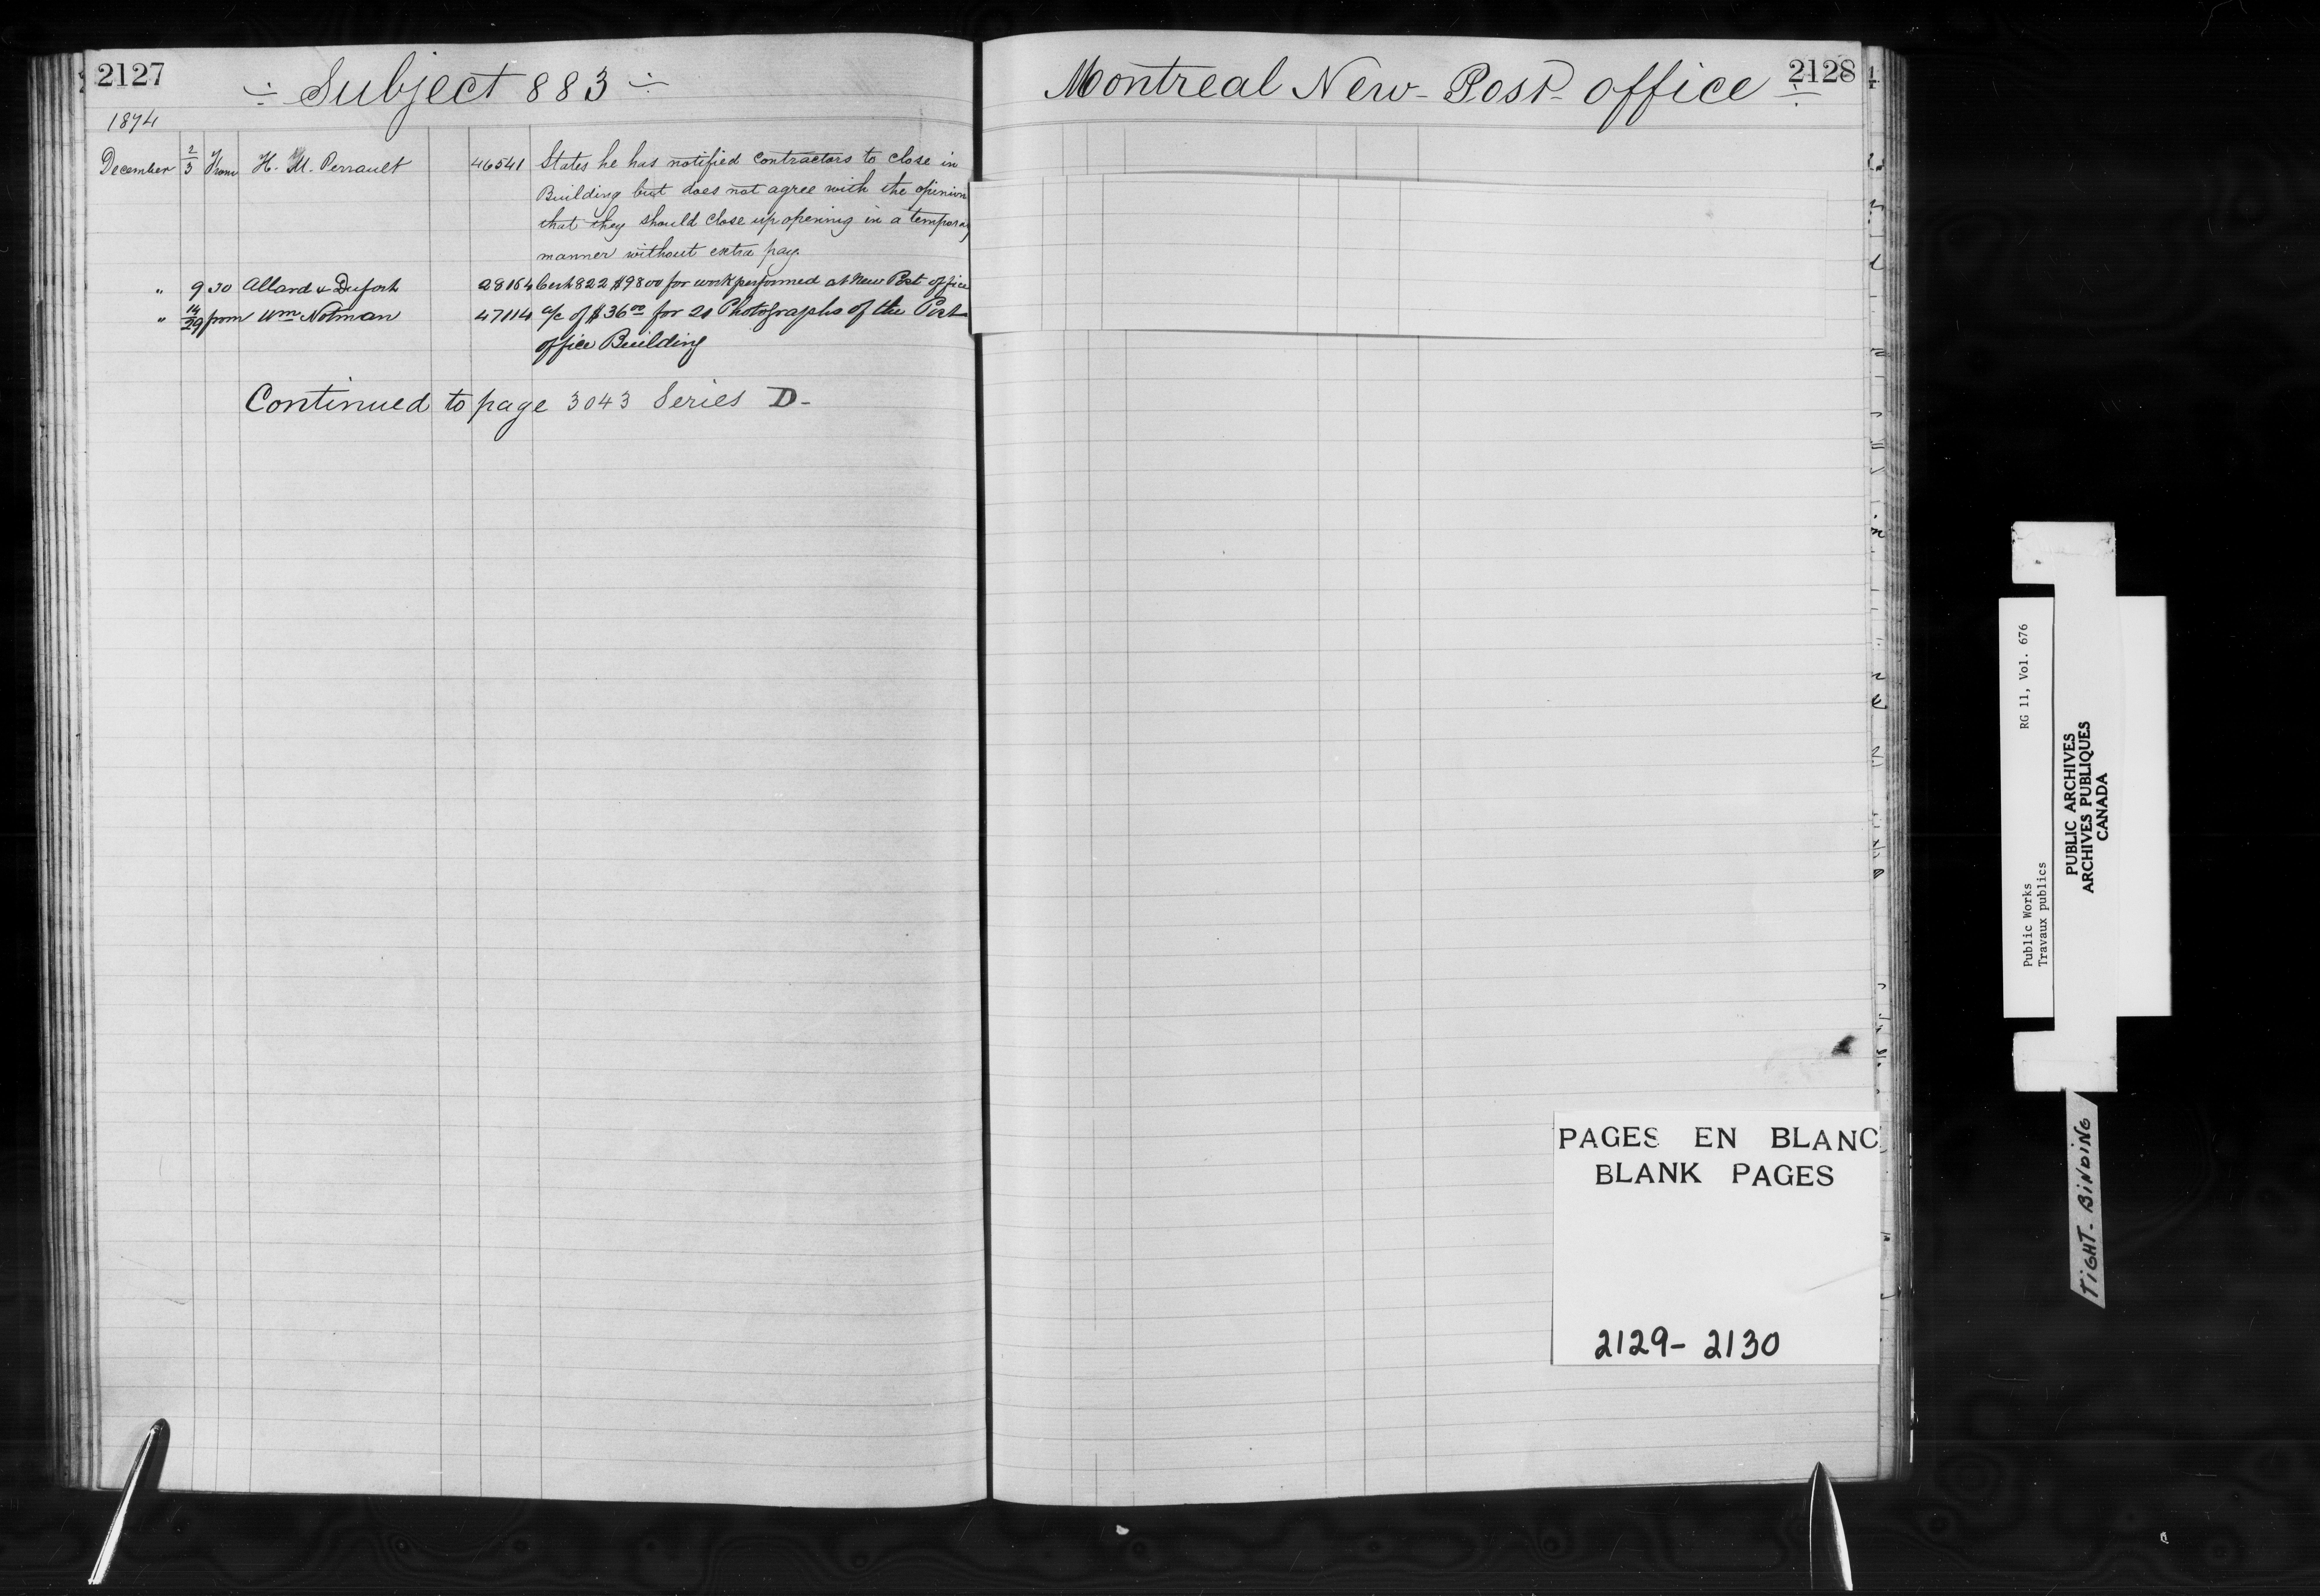 2127
÷ Subject 883 ÷
1874
December 2/3 From H. M. Perrault 46541 States he has notified contractors to close in
Building but does not agree with the opinion
that they should close up opening in a temporary
manner without extra pay.
" 9 to Allard & Dufort 28164 Cert 822 $9800 for work performed at New Post office
" 14/29 from Wm Notman 47114 a/c of $36 00 for 20 Photographs of the Post
office Building
Continued to page 3043 Series D-
Montreal New Post office ÷
2128
PAGES EN BLANC
BLANK PAGES
2129- 2130
Public Works RG 11, Vol. 676
Travaux publics
PUBLIC ARCHIVES
ARCHIVES PUBLIQUES
CANADA
TIGHT. BINDING